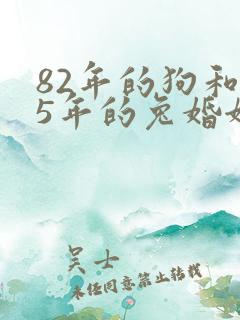 82年的狗和
5年的兔婚
吴士
未经同意禁止转载